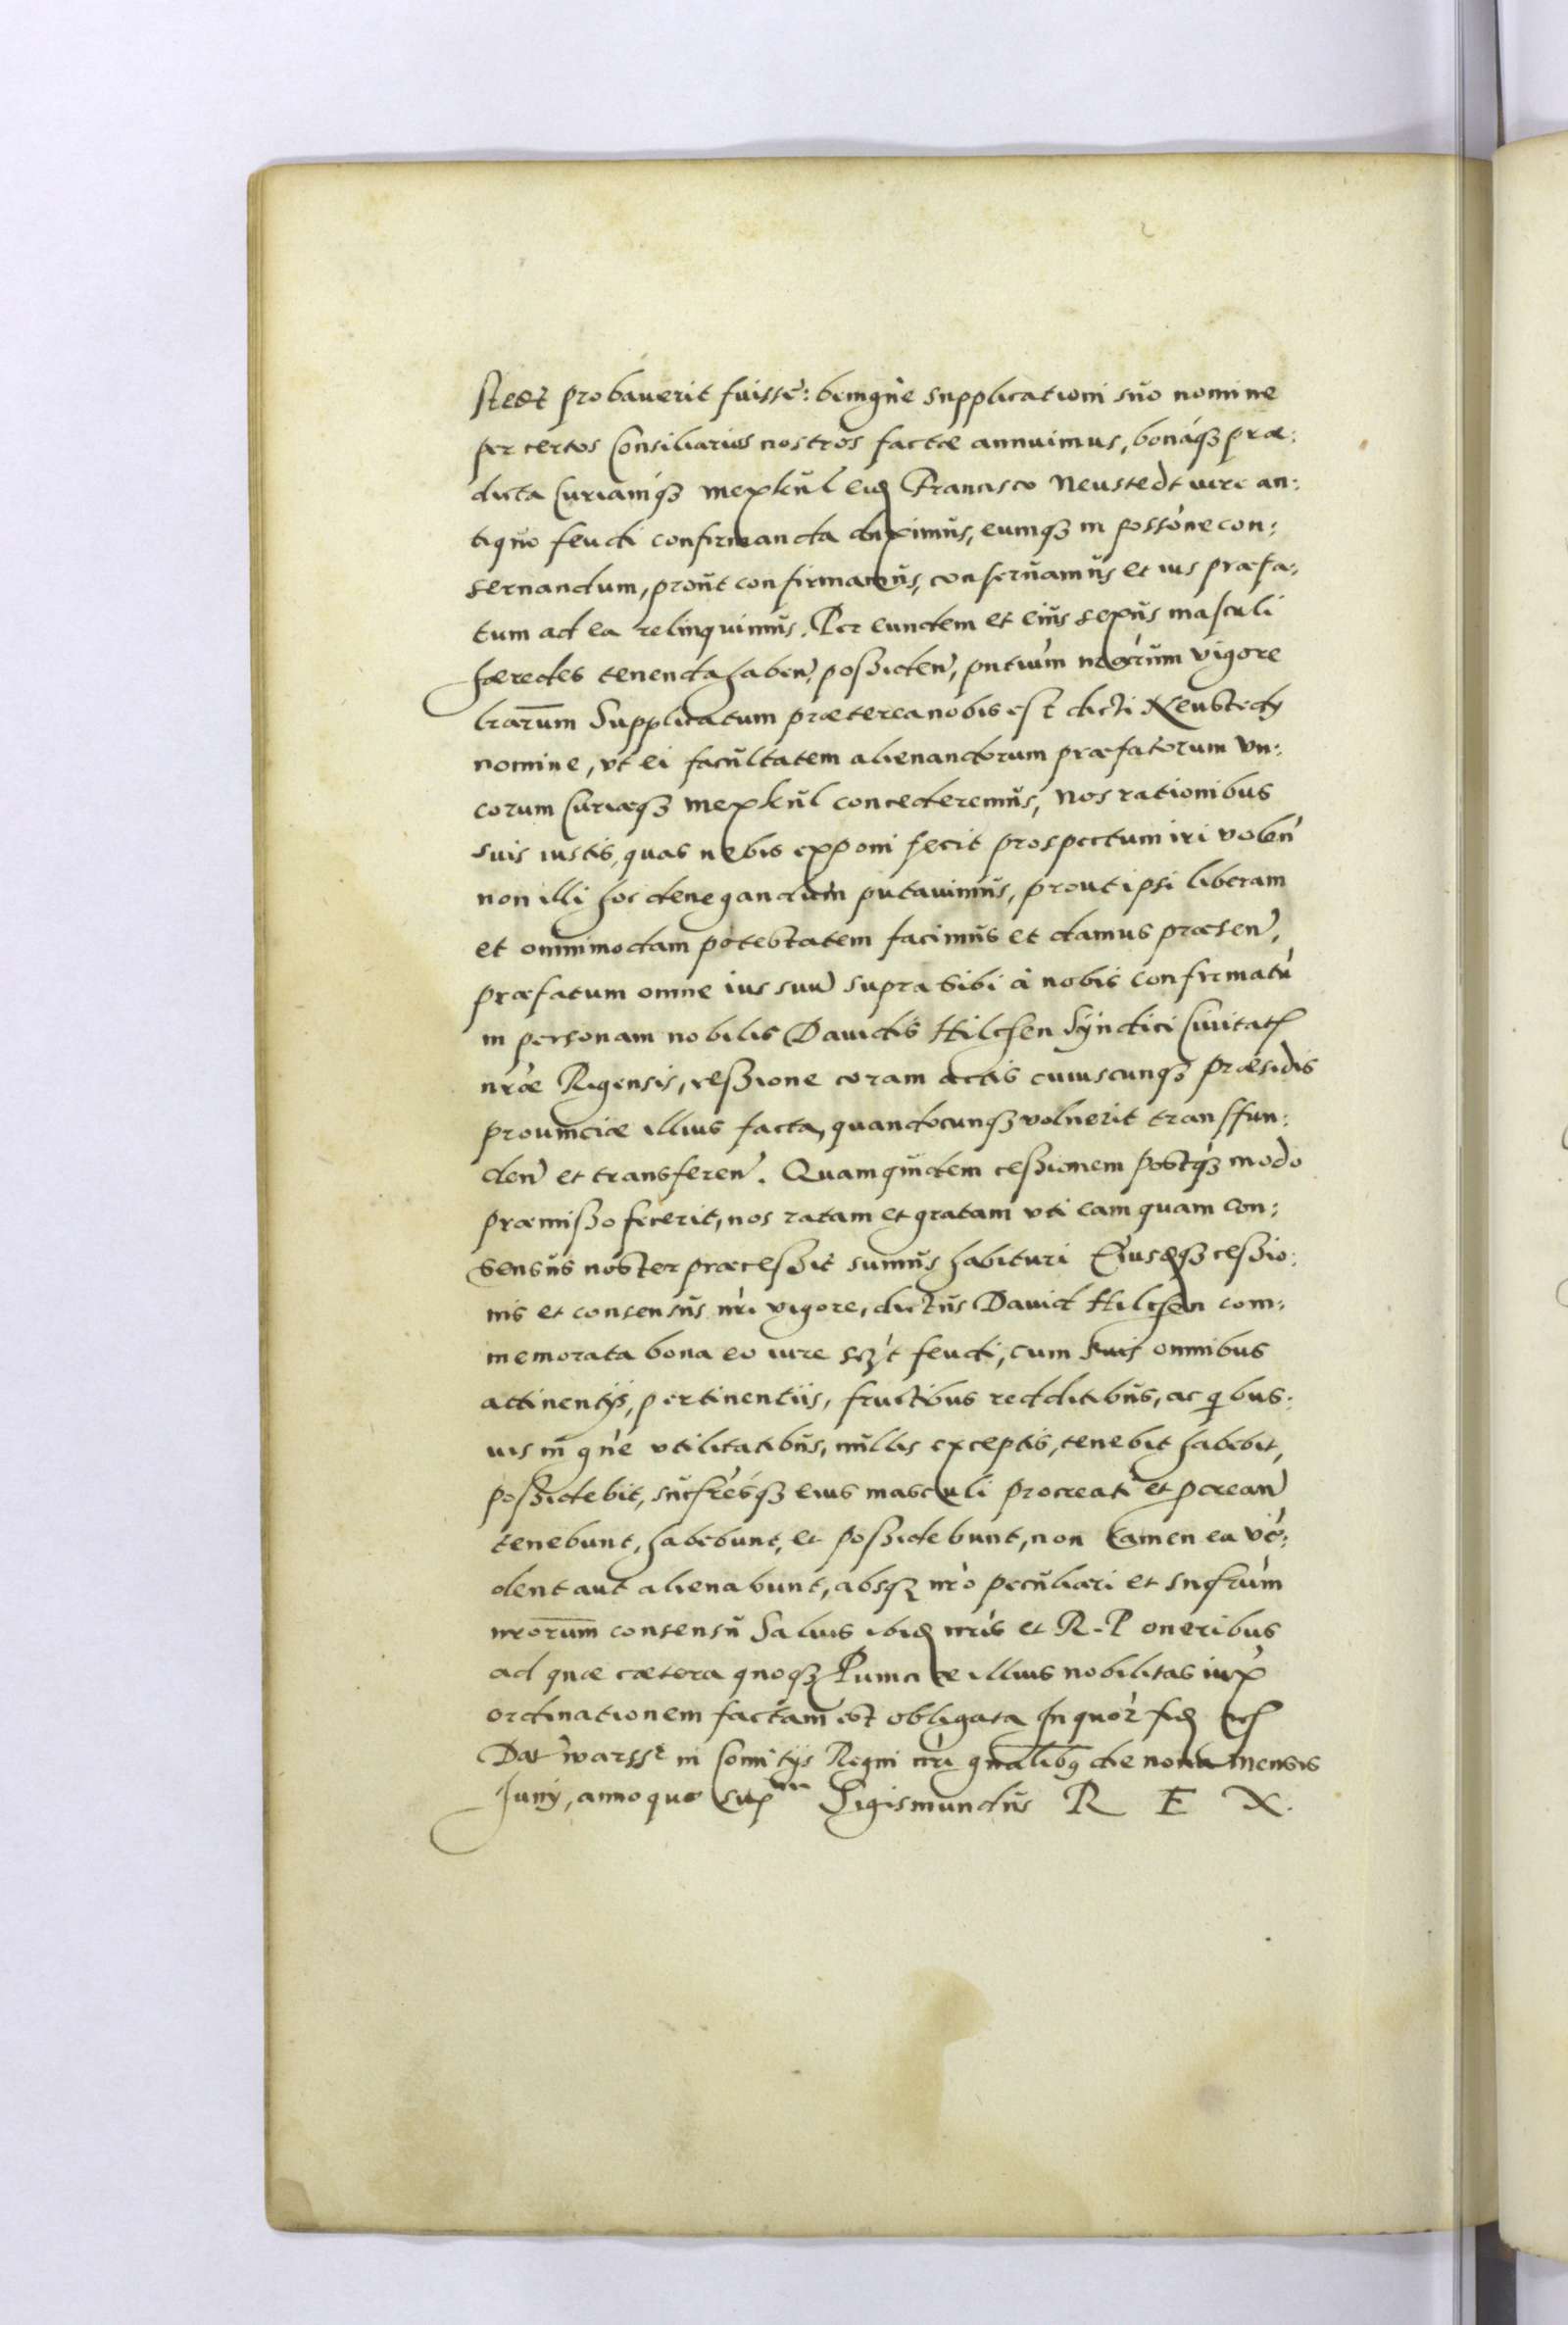 stedt probauerit fuisse: benigne supplicationi suo nomine
per certos Consiliarios nostros factæ annuimus, bonáqȝ præ:
dicta Curiamqȝ Mexkul eid Francisco Neustedt iure an:
tiquo feudi confirmanda duximus, eumqȝ in possone con:
seruandum, prout confirmamus, conseruamus et ius præfa:
tum ad ea relinquimus. Per eundem et eius sexus masculi
hæredes tenenda haben, possiden, pntium nrarum vigore
lrarum Supplicatum præterea nobis est dicti Neustedy
nomine, vt ei facultatem alienandorum præfatorum vn:
corum Curiæqȝ Mexkul concederemus, Nos rationibus
suis iustis, quas nobis exponi fecit prospectum iri volen
non illi hoc denegandum putauimus, prout ipsi liberam
et omnimodam potestatem facimus et damus præsen,
præfatum omne ius suu supra sibi à nobis confirmatu
in personam nobilis Dauidis Hilchen Syndici Ciuitat
nræ Rigensis, cessione coram actis cuiuscunqȝ Præsidis
prouinciæ illius facta, quandocunqȝ voluerit transfun:
den et transferen. Quam quidem cessionem postqȝ modo
præmisso fecerit, nos ratam et gratam vti eam quam con:
sensus noster præcessit sumus habituri Eiusdqȝ cessio:
nis et consensus nri vigore, dictus Dauid Hilchen com:
memorata bona eo iure sȝt feudi, cum suis omnibus
attinentijs, pertinentiis, fructibus redditibus, ac qbus:
uis in gne vtilitatibus, nullis exceptis, tenebit habebit,
possidebit, sucresqȝ eius masculi procreati et pcrean
tenebunt, habebunt, et possidebunt, non tamen ea vē:
dent aut alienabunt, absqȝ nro peculiari et sucrum
nrorum consensu Saluis ibid nris et R. P oneribus
ad quæ cætera quoqȝ Puinciæ illius nobilitas iux
ordinationem factam est obligata In quor fid
Dat warssæ in Comitijs Regni nri gnalibȝ die nona Mensis
Junij, anno quo sup Sigismundus R E X.